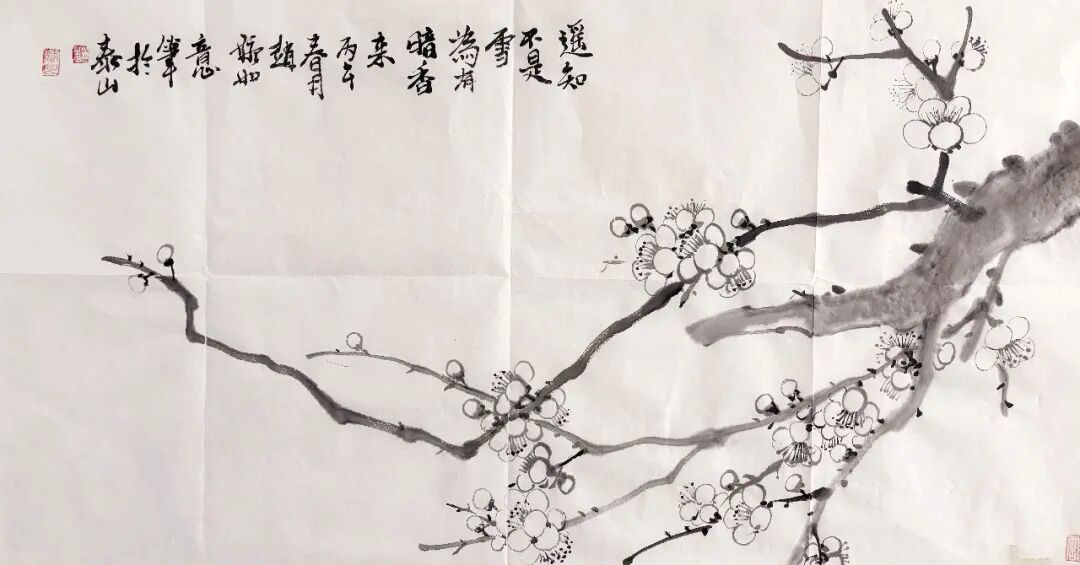 遥知
不是
雪
為有
暗香
来
丙午
春月
趙
如
意
筆
於
泰山